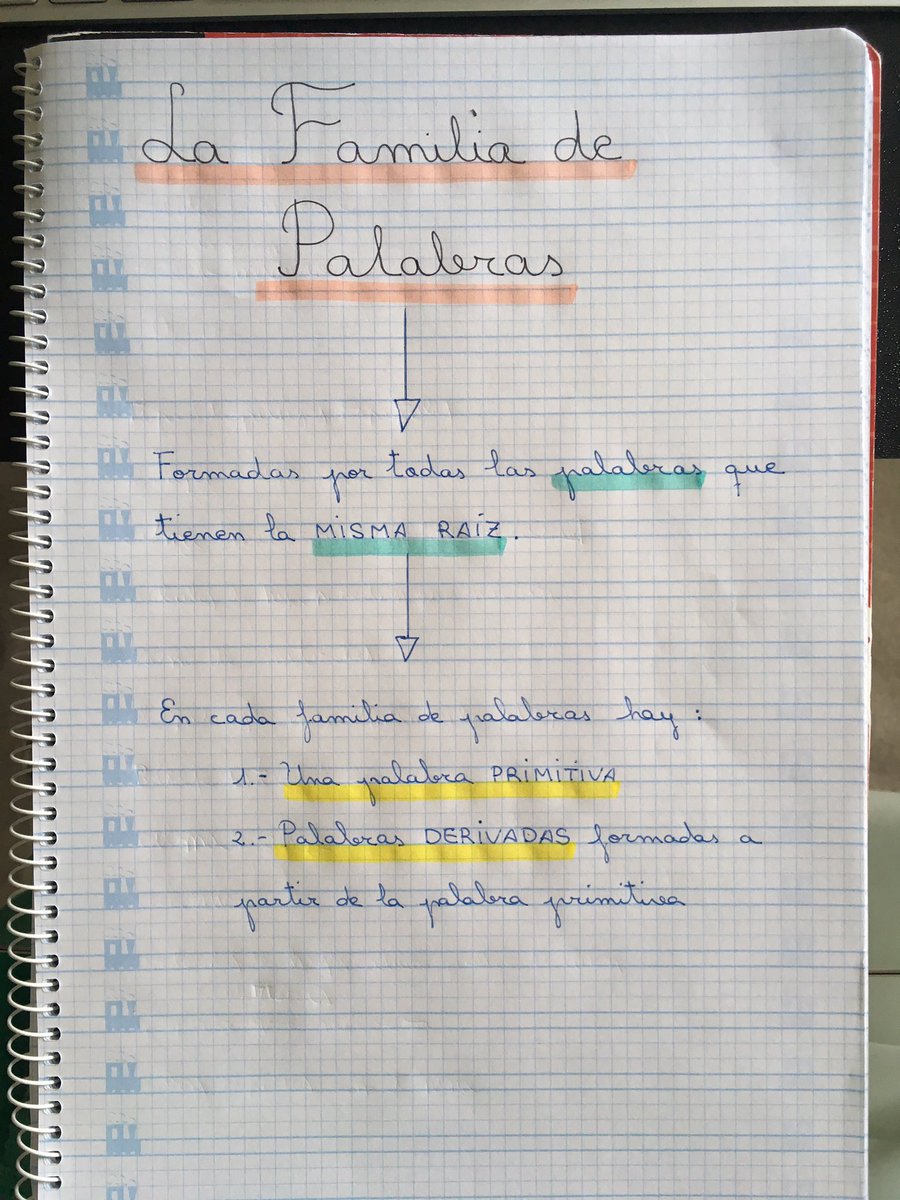 La Familia de
Palabras
Formadas por todas las palabras que
tienen la MISMA RAÍZ.
En cada familia de palabras hay :
1.- Una palabra PRIMITIVA
2.- Palabras DERIVADAS formadas a
partir de la palabra primitiva